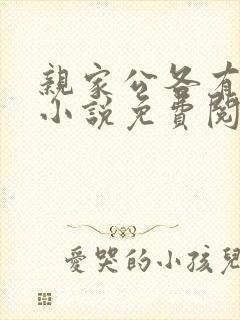 親家公各有
小說免費閱
愛哭的小孩兒